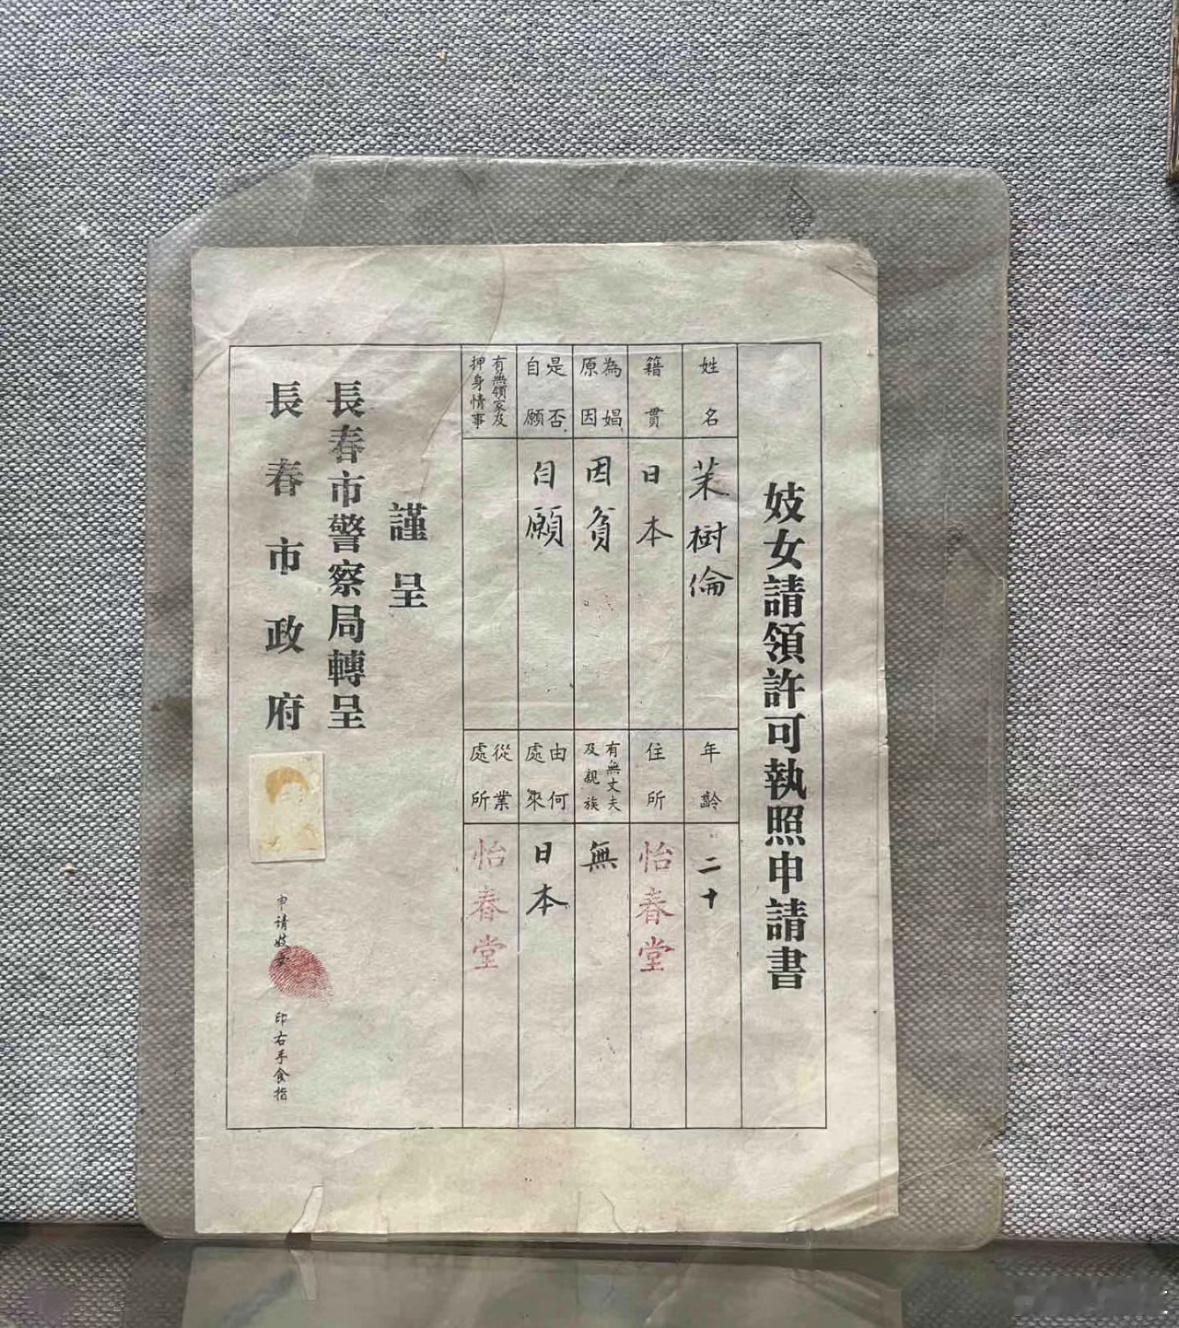 妓女請領許可執照申請書
姓名
茉樹倫
年齡
二十
籍貫
日本
住所
怡春堂
為娼原因
因貧
有無丈夫及親族
無
是否自願
自願
由何處來
日本
有無領家及押身情事
從業處所
怡春堂
謹呈
長春市警察局轉呈
長春市政府
申请妓
印右手食指